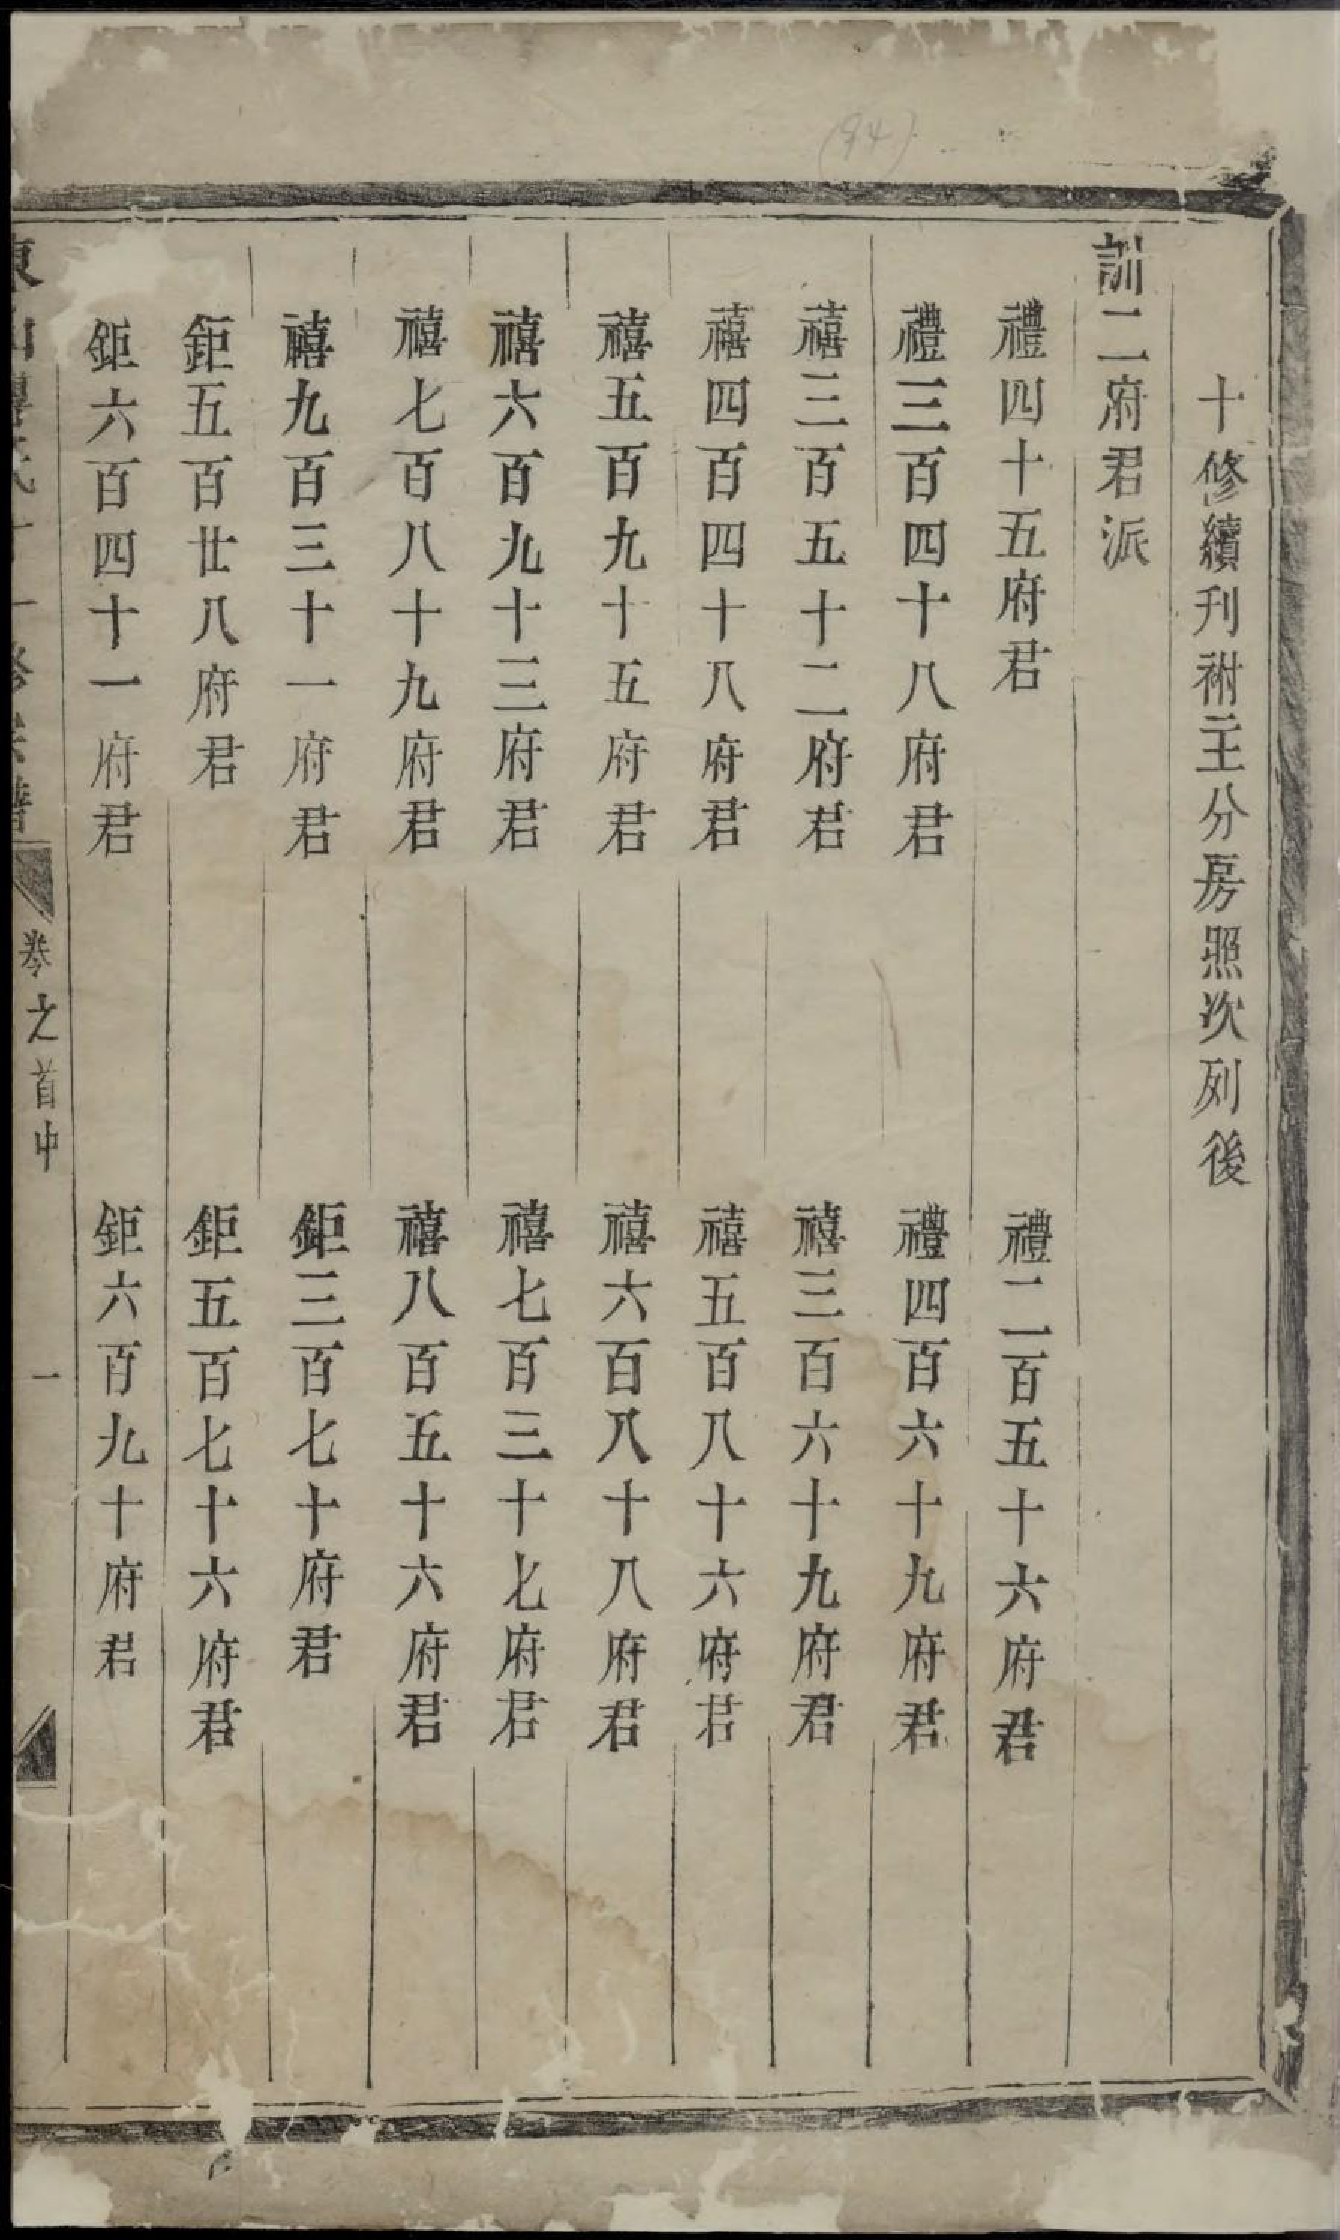 (94)
十修續刊祔主分房照次列後
訓二府君派
禮四十五府君
禮二百五十六府君
禮三百四十八府君
禮四百六十九府君
禧三百五十二府君
禧三百六十九府君
禧四百四十八府君
禧五百八十六府君
禧五百九十五府君
禧六百八十八府君
禧六百九十三府君
禧七百三十七府君
禧七百八十九府君
禧八百五十六府君
禧九百三十一府君
鉅三百七十府君
鉅五百廿八府君
鉅五百七十六府君
鉅六百四十一府君
鉅六百九十府君
卷之首中
一